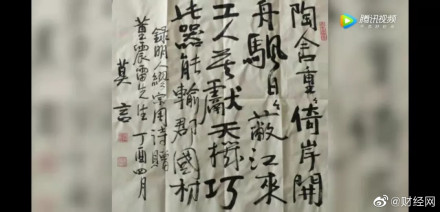 陶舍重〻倚岸開
舟颿日〻蔽江來
工人莫獻天機巧
此器能輸郡國材
錄明人繆宗周詩贈
震雷先生丁酉四月
莫言
腾讯视频
@财经网